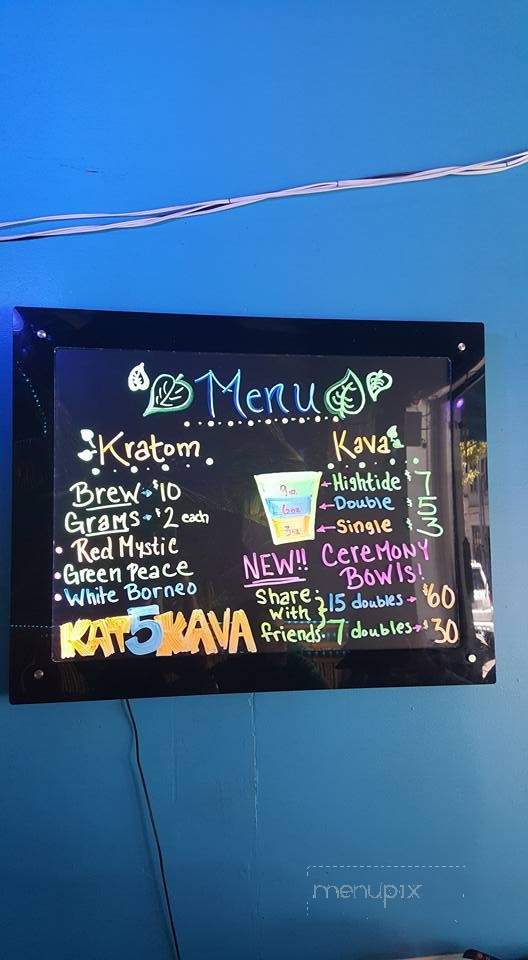 Menu
Kratom
Brew → $10
Grams → $2 each
• Red Mystic
• Green Peace
• White Borneo
KAT5KAVA
Kava
9oz ← Hightide $7
6oz ← Double $5
3oz ← Single $3
NEW!! Ceremony
Bowls!
Share
with
friends.
15 doubles → $60
7 doubles → $30
menupix